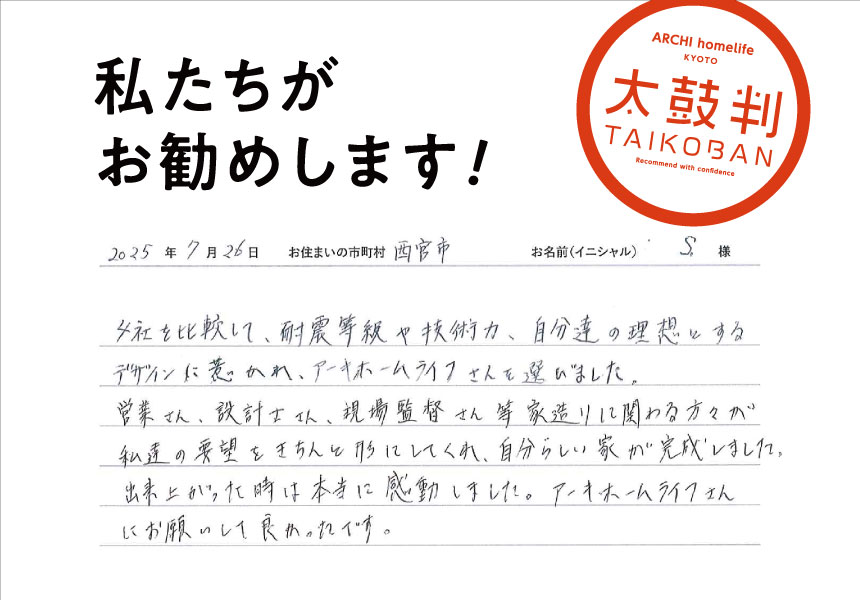 私たちが
お勧めします!
ARCHI homelife
KYOTO
太鼓判
TAIKOBAN
Recommend with confidence
2025 年 7 月 26 日 お住まいの市町村 西宮市 お名前(イニシャル) S. 様
4社を比較して、耐震等級や技術力、自分達の理想とする
デザインに惹かれ、アーキホームライフさんを選びました。
営業さん、設計士さん、現場監督さん等家造りに関わる方々が
私達の要望をきちんと形にしてくれ、自分らしい家が完成しました。
出来上がった時は本当に感動しました。アーキホームライフさん
にお願いして良かったです。